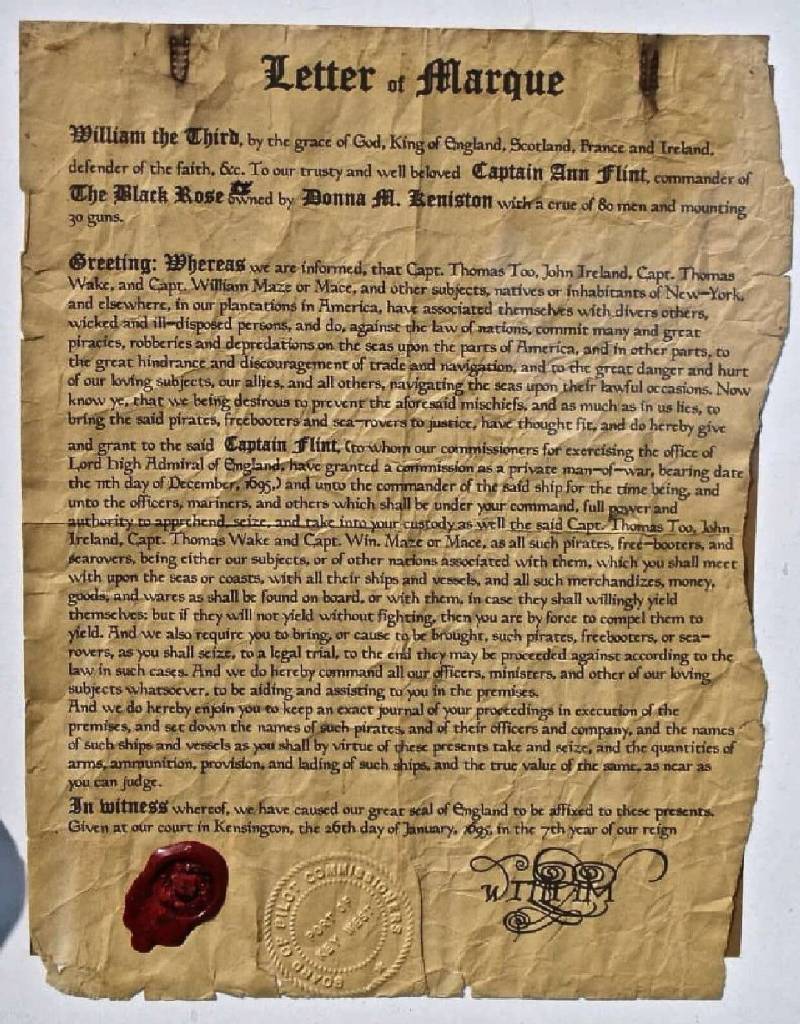 Letter of Marque
William the Third, by the grace of God, King of England, Scotland, France and Ireland,
defender of the faith, &c. To our trusty and well beloved Captain Ann Flint, commander of
The Black Rose owned by Donna M. Keniston with a crue of 80 men and mounting
30 guns.
Greeting: Whereas we are informed, that Capt. Thomas Too, John Ireland, Capt. Thomas
Wake, and Capt. William Maze or Mace, and other subjects, natives or inhabitants of New-York,
and elsewhere, in our plantations in America, have associated themselves with divers others,
wicked and ill-disposed persons, and do, against the law of nations, commit many and great
piracies, robberies and depredations on the seas upon the parts of America, and in other parts, to
the great hindrance and discouragement of trade and navigation, and to the great danger and hurt
of our loving subjects, our allies, and all others, navigating the seas upon their lawful occasions. Now
know ye, that we being desirous to prevent the aforesaid mischiefs, and as much as in us lies, to
bring the said pirates, freebooters and sea-rovers to justice, have thought fit, and do hereby give
and grant to the said Captain Flint, (to whom our commissioners for exercising the office of
Lord high Admiral of England, have granted a commission as a private man-of-war, bearing date
the 11th day of December, 1695,) and unto the commander of the said ship for the time being, and
unto the officers, mariners, and others which shall be under your command, full power and
authority to apprehend, seize, and take into your custody as well the said Capt. Thomas Too, John
Ireland, Capt. Thomas Wake and Capt. Win. Maze or Mace, as all such pirates, free-booters, and
searovers, being either our subjects, or of other nations associated with them, which you shall meet
with upon the seas or coasts, with all their ships and vessels, and all such merchandizes, money,
goods, and wares as shall be found on board, or with them, in case they shall willingly yield
themselves: but if they will not yield without fighting, then you are by force to compel them to
yield. And we also require you to bring, or cause to be brought, such pirates, freebooters, or sea-
rovers, as you shall seize, to a legal trial, to the end they may be proceeded against according to the
law in such cases. And we do hereby command all our officers, ministers, and other of our loving
subjects whatsoever, to be aiding and assisting to you in the premises.
And we do hereby enjoin you to keep an exact journal of your proceedings in execution of the
premises, and set down the names of such pirates, and of their officers and company, and the names
of such ships and vessels as you shall by virtue of these presents take and seize, and the quantities of
arms, ammunition, provision, and lading of such ships, and the true value of the same, as near as
you can judge.
In witness whereof, we have caused our great seal of England to be affixed to these presents.
Given at our court in Kensington, the 26th day of January, 1695, in the 7th year of our reign
BOARD OF PILOT COMMISSIONERS
PORT OF
KEY WEST
William